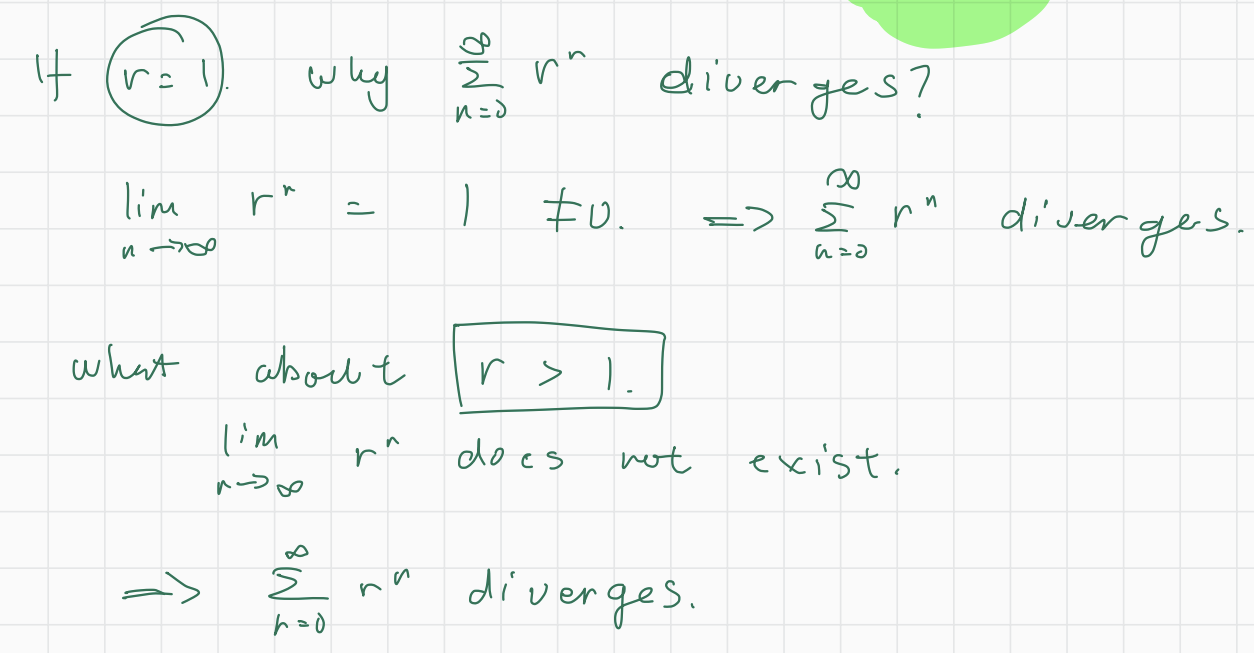 If r = 1. why ∑_{n=0}^{∞} r^n diverges?
lim_{n→∞} r^n = 1 ≠ 0. => ∑_{n=0}^{∞} r^n diverges.
what about r > 1.
lim_{n→∞} r^n does not exist.
=> ∑_{n=0}^{∞} r^n diverges.